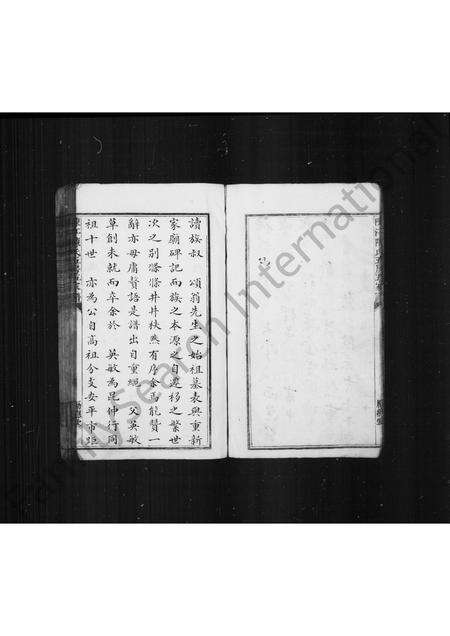 讀族叔 頌翁先生之始祖墓表與重新
家廟碑記而族之本源之自遷移之繁世
次之別條條井井秩然有序余為能贊一
辭亦毋庸贅語是譜出自重繩 父英敏
草創未就而卒余於 英敏為昆仲行同
祖十世 亦為公自高祖分支安平市距
FamilySearch International